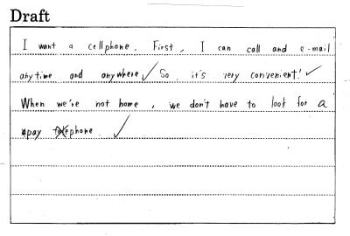 Draft
I want a cellphone. First, I can call and e-mail
anytime and anywhere. So it's very convenient!
When we're not home, we don't have to look for a
pay phone.